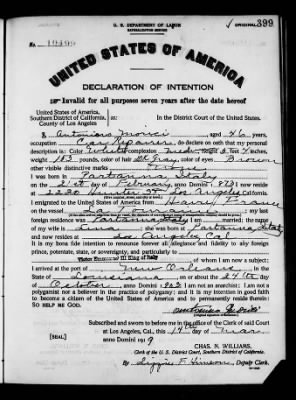 U. S. DEPARTMENT OF LABOR
NATURALIZATION SERVICE
399
No.
UNITED STATES OF AMERICA
DECLARATION OF INTENTION
Invalid for all purposes seven years after the date hereof
United States of America,
Southern District of California,
County of Los Angeles
In the District Court of the United States.
I, Antonino, aged 46 years,
occupation Car Repairer, do declare on oath that my personal
description is: Color White, complexion, height 5 feet inches,
weight 183 pounds, color of hair Dk Gray, color of eyes Brown
other visible distinctive marks
I was born in Partanna Italy
on the 21st day of February, anno Domini 1873; I now reside
at Hunter St Los Angeles California
I emigrated to the United States of America from Havre France
on the vessel La; my last
foreign residence was Partanna Italy; I am married; the name
of my wife is; she was born at Partanna Italy
and now resides at Los Angeles Cal
It is my bona fide intention to renounce forever all allegiance and fidelity to any foreign
prince, potentate, state, or sovereignty, and particularly to
Victor Emmanuel III King of Italy
I arrived at the port of New Orleans, in the
State of Louisiana, on or about the 24th day
of October, anno Domini; I am not an anarchist; I am not a
polygamist nor a believer in the practice of polygamy; and it is my intention in good faith
to become a citizen of the United States of America and to permanently reside therein:
SO HELP ME GOD.
Antonino
Subscribed and sworn to before me in the office of the Clerk of said Court
at Los Angeles, Cal., this 14th day of Mar
anno Domini 1919
[SEAL]
CHAS. N. WILLIAMS,
Clerk of the U. S. District Court, Southern District of California.
By, Deputy Clerk.